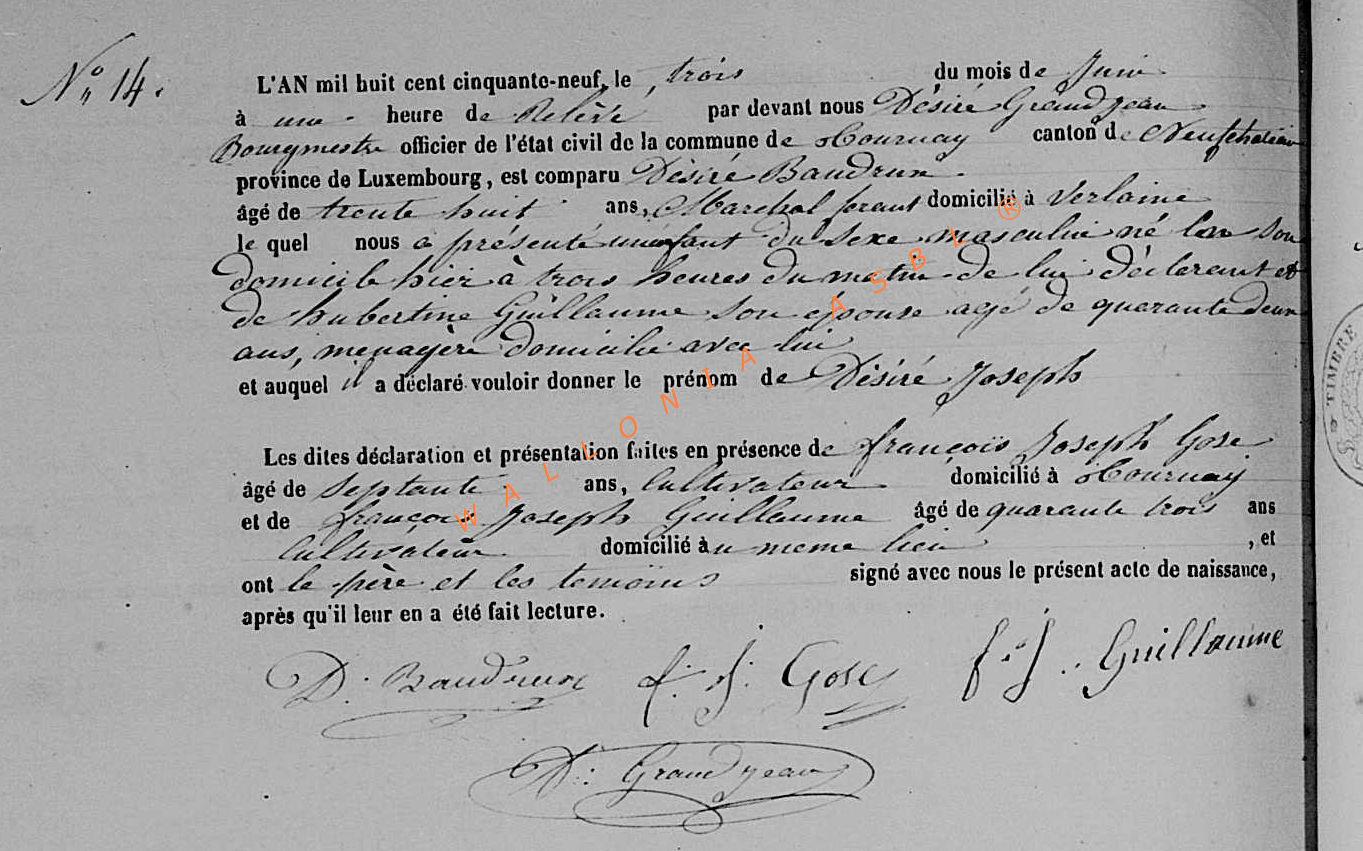 N° 14.
L'AN mil huit cent cinquante-neuf, le trois du mois de Juin
à une heure de Relevé par devant nous Désiré Grandjean
Bourgmestre officier de l'état civil de la commune de Tournay canton de Neufchateau
province de Luxembourg, est comparu Désiré Baudrux
âgé de trente huit ans, Marechal ferant domicilié à Verlaine
le quel nous a présenté un enfant du sexe masculin né en son
domicile hier à trois heures du matin de lui déclarant et
de hubertine Guillaume son épouse agé de quarante deux
ans, menagère domicilié avec lui
et auquel il a déclaré vouloir donner le prénom de Désiré Joseph
Les dites déclaration et présentation faites en présence de françois Joseph Gose
âgé de Septante ans, Cultivateur domicilié à Tournay
et de françois Joseph Guillaume âgé de quarante trois ans
Cultivateur domicilié àu meme lieu , et
ont le père et les temoins signé avec nous le présent acte de naissance,
après qu'il leur en a été fait lecture.
D. Baudrux f. J. Gose f. J. Guillaume
D. Grandjean
WALLONIA ASBL ®
TIMBRE